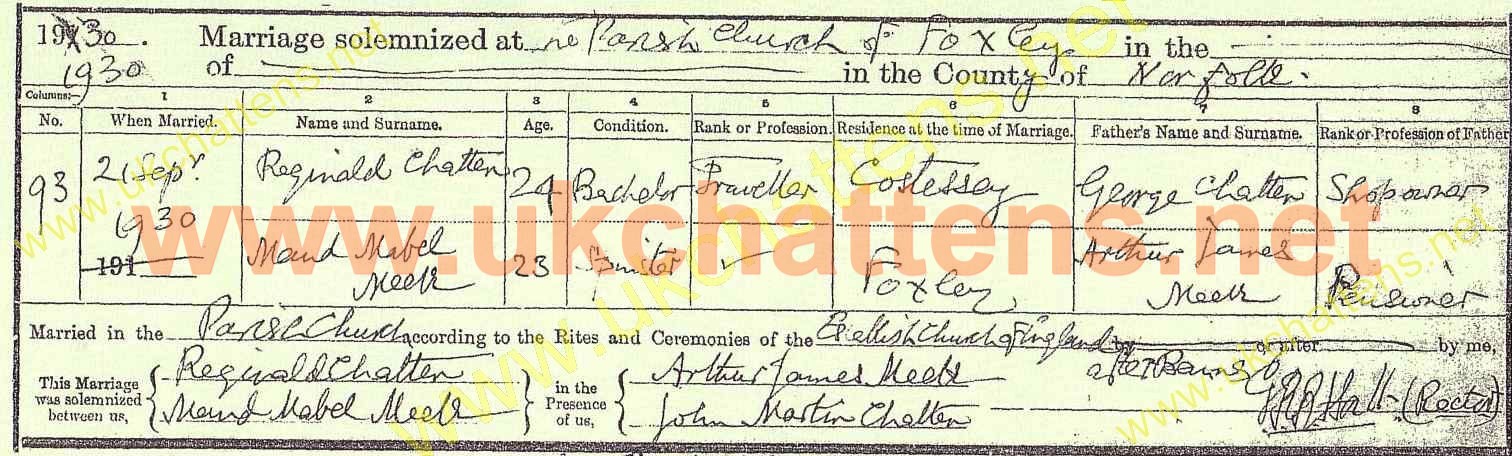 1930. Marriage solemnized at the Parish Church of Foxley in the
1930 of in the County of Norfolk.
Columns:— 1 2 3 4 5 6 7 8
No. When Married. Name and Surname. Age. Condition. Rank or Profession. Residence at the time of Marriage. Father's Name and Surname. Rank or Profession of Father
93 21 Sepr Reginald Chatten 24 Bachelor Traveller Costessey George Chatten Shopowner
www.ukchattens.net
1930 Maud Mabel 23 Spinster Foxley Arthur James Pensioner
191 Meek Meek
Married in the Parish Church according to the Rites and Ceremonies of the Established Church of England by or after by me,
after Banns
This Marriage was solemnized between us, Reginald Chatten in the Presence of us, Arthur James Meek
Maud Mabel Meek John Martin Chatten Hall (Rector)
www.ukchattens.net
www.ukchattens.net
www.ukchattens.net
www.ukchattens.net
www.ukchattens.net